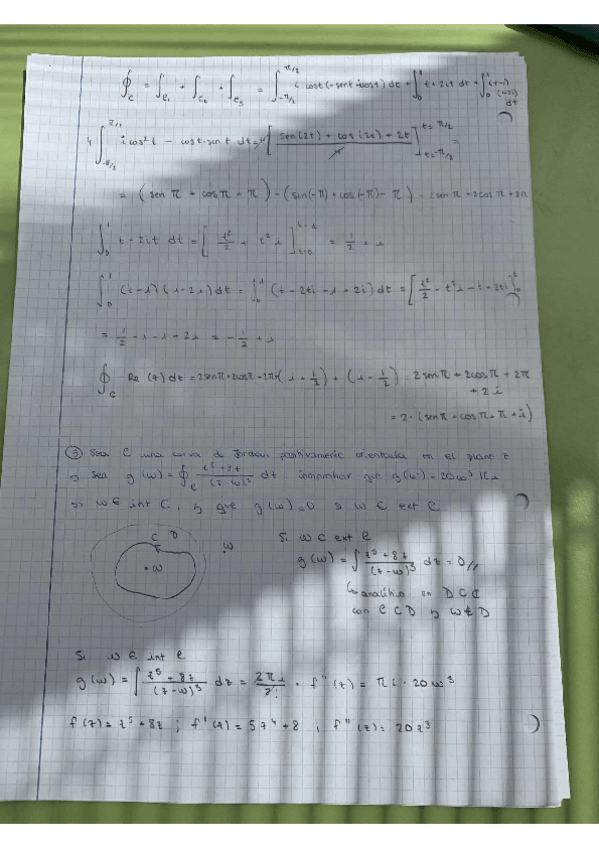 ∮_C = ∫_{C₁} + ∫_{C₂} + ∫_{C₃} = ∫_{-π/2}^{π/2} cos t (-sen t + i cos t) dt + ∫_0^1 t + 2it dt + ∫_0^1 (t-1) dt
∫_{-π/2} i cos² t - cos t · sen t dt = [sen(2t) + cos(2t) + 2t / 4]_{t=-π/2}^{t=π/2} =
= (sen π + cos π - π) - (sin(-π) + cos(-π) - π) = 2 sen π + 2cos π + 2π
∫_0^1 t - 2it dt = [t²/2 + t² i]_{t=0} = 1/2 + i
∫_0^1 (t-i)(1-2i) dt = ∫_0^1 (t - 2ti - 1 + 2i) dt = [t²/2 - t² i - t + 2ti]_0
= 1/2 - i - 1 + 2i = -1/2 + i
∮_C Re(z) dt = 2 sen π + 2cos π + 2π + (i + 1/2) + (i - 1/2) = 2 sen π + 2 cos π + 2π + 2i
= 2 · (sen π + cos π + π + i)
③ Sea C una curva de Jordan positivamente orientada en el plano z
y sea g(w) = ∮_C dt que g(w) = 20w³ πi
si w ∈ int C, y que g(w) = 0 si w ∈ ext C
C D
w
Si w ∈ ext C
w
g(w) = ∫ z⁵ + 8z / (z-w)³ dz = 0 //
analítica en D ⊂ C
con C ⊂ D y w ∉ D
Si w ∈ int C
g(w) = ∫ z⁵ + 8z / (z-w)³ dz = 2πi/2! · f''(z) = πi · 20w³
f(z) = z⁵ + 8z ; f'(z) = 5z⁴ + 8 ; f''(z) = 20z³